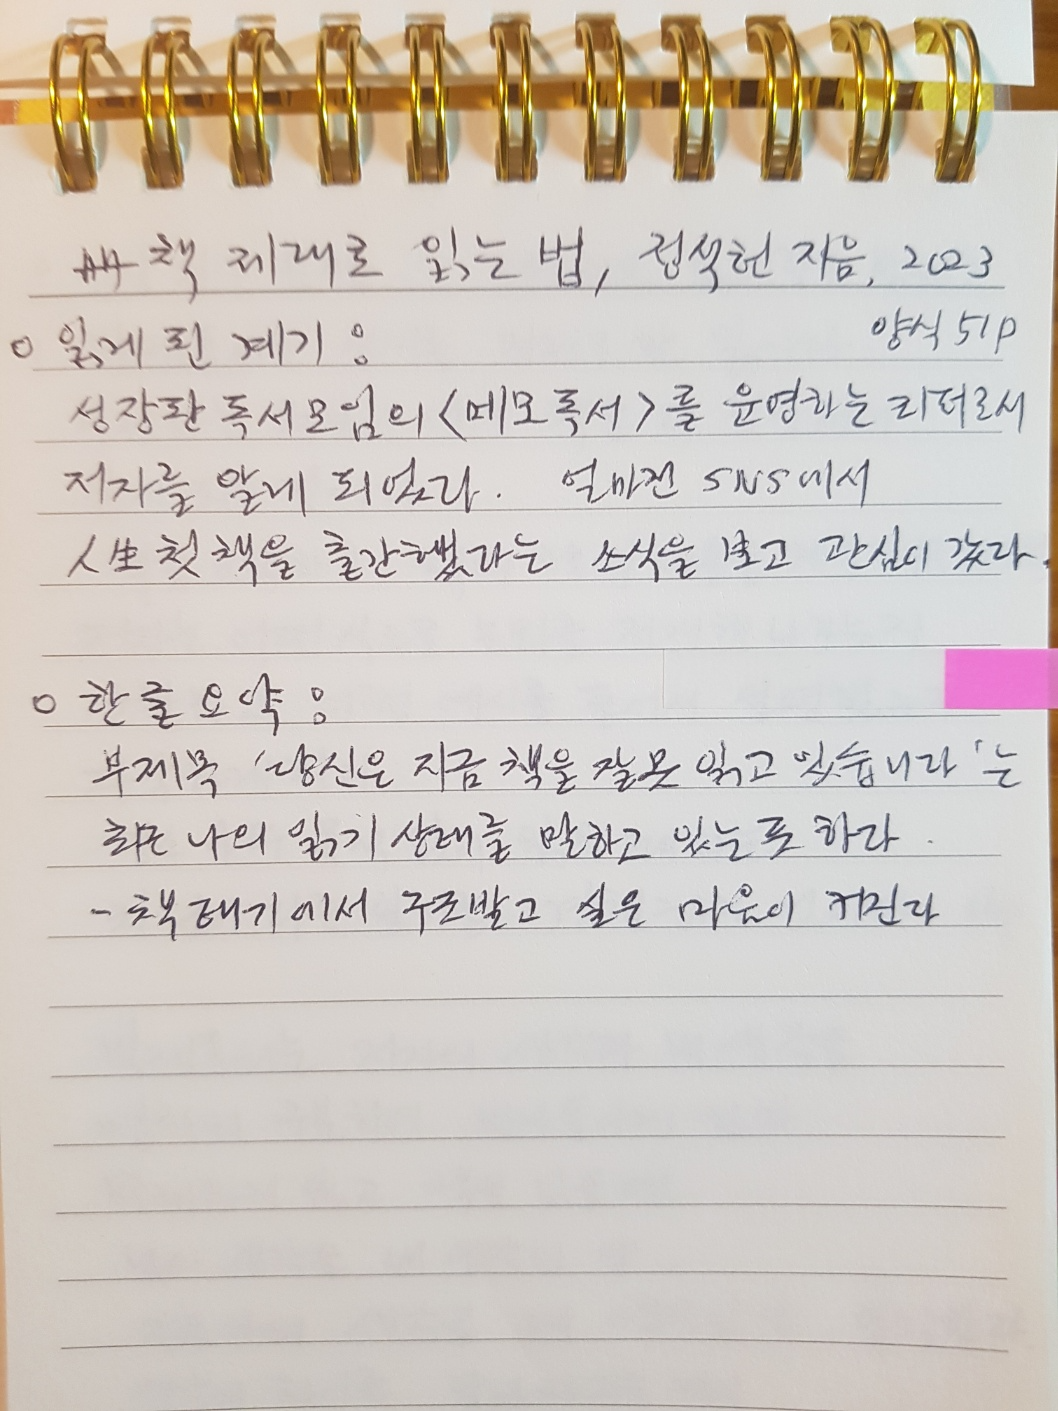 책 제대로 읽는 법, 정석헌 지음, 2023
양식 51p
o 읽게 된 계기 :
성장판 독서모임의 <메모독서>를 운영하는 리더로서
저자를 알게 되었다. 얼마전 SNS에서
人生 첫 책을 출간했다는 소식을 보고 관심이 갔다.
o 한글 요약 :
부제목 '당신은 지금 책을 잘못 읽고 있습니다'는
최근 나의 읽기 상태를 말하고 있는 듯 하다.
- 책태기에서 구조받고 싶은 마음이 커진다